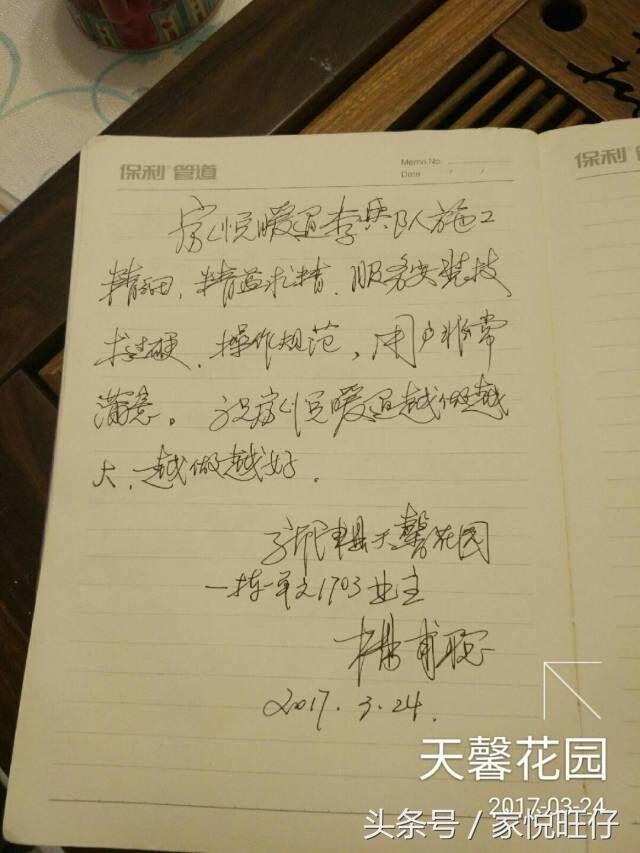 保利®管道
Memo No.
Date / /
保利®管道
家悦暖通李兵队施工
精细，精益求精，服务安装技
术过硬，操作规范，用户非常
满意。祝家悦暖通越做越
大，越做越好．
新津县天馨花园
一栋一单元1703业主
2017．3．24．
天馨花园
2017-03-24
头条号 / 家悦旺仔